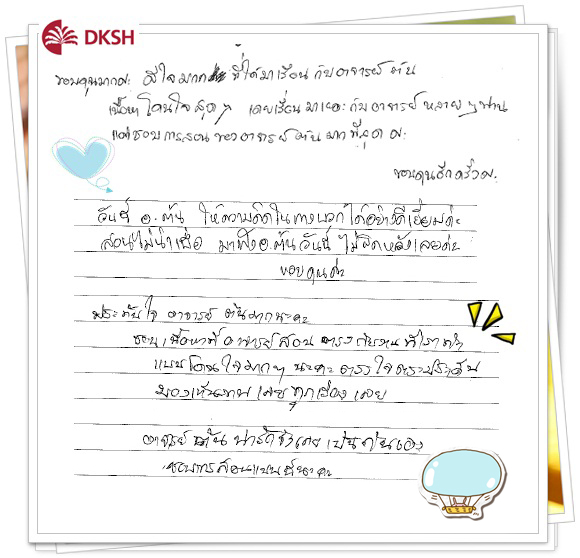 DKSH
ขอบคุณมากค่ะ ดีใจมาก ที่ได้มาเรียน กับอาจารย์ ต้น
เนื้อหา โดนใจ สุดๆ เคยเรียน มาเยอะ กับอาจารย์ หลายๆ ท่าน
แต่ชอบการสอน ของอาจารย์ ต้น มากที่สุด ค่ะ
ขอบคุณอีกครั้งค่ะ
วันนี้ อ.ต้น ให้ความคิดในทางบวกได้อย่างดีเยี่ยมค่ะ
สอนไม่น่าเบื่อ มาฟังอ.ต้นวันนี้ ไม่ผิดหวังเลยค่ะ
ขอบคุณค่ะ
ประทับใจ อาจารย์ ต้นมากนะคะ
ชอบเนื้อหาที่อาจารย์สอน ตรงกับงานที่เราทำ
แบบโดนใจมากๆ นะคะ ตรงใจตรงประเด็น
มองเห็นภาพ เลย ทุกเรื่อง เลย
อาจารย์ ต้น น่ารักจังเลย เป็นกันเอง
ชอบการสอนแบบนี้นะคะ